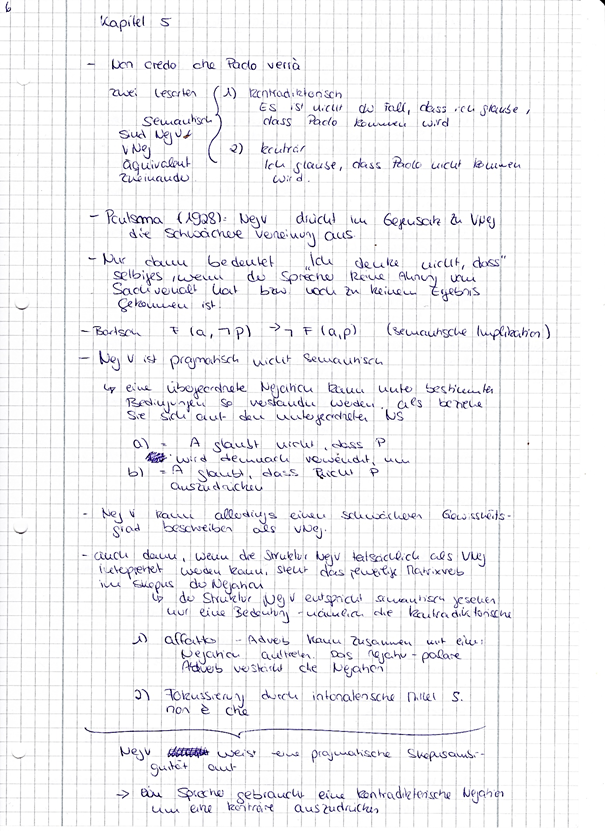 6
Kapitel 5
- Non credo che Paolo verrà
zwei Lesarten 1) kontradiktorisch
Es ist nicht der Fall, dass ich glaube,
dass Paolo kommen wird
semantisch
sind NegV
VNeg
äquivalent
zueinander
2) konträr
Ich glaube, dass Paolo nicht kommen
wird.
- Poutsma (1928): NegV drückt im Gegensatz zu VNeg
die schwächere Verneinung aus.
- Nur dann bedeutet "Ich denke nicht, dass"
selbiges, wenn der Sprecher keine Ahnung vom
Sachverhalt hat bzw. noch zu keinem Ergebnis
gekommen ist.
- Bartsch F (a, ¬ p) → ¬ F (a, p) (semantische Implikation)
- Neg V ist pragmatisch nicht semantisch
↳ eine übergeordnete Negation kann unter bestimmten
Bedingungen so verstanden werden, als beziehe
Sie sich auf den untergeordneten NS
a) = A glaubt nicht, dass P
wird demnach verwendet, um
b) = A glaubt, dass nicht P
auszudrücken
- Neg V kann allerdings einen schwächeren Gewissheits-
grad beschreiben als VNeg.
- auch dann, wenn die Struktur NegV tatsächlich als VNeg
interpretiert werden kann, steht das jeweilige Matrixverb
im Skopus der Negation
↳ der Struktur Neg V entspricht semantisch gesehen
nur eine Bedeutung - nämlich die kontradiktorische
1) affatto - Adverb kann zusammen mit einer
Negation auftreten. Das negativ-polare
Adverb verstärkt die Negation
2) Fokussierung durch intonatorische Mittel s.
non è che
NegV weist eine pragmatische Skopusambi-
guität auf
→ Ein Sprecher gebraucht eine kontradiktorische Negation
um eine konträre auszudrücken